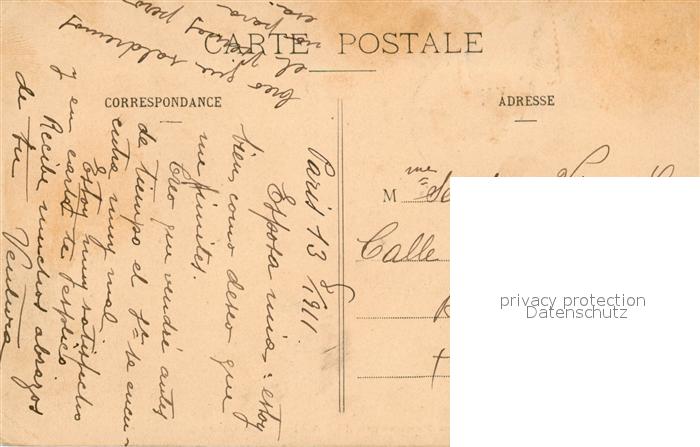 CARTE POSTALE
CORRESPONDANCE
ADRESSE
Paris 13 8/1911
Esposa mia: estoy
bien como deseo que
me
Creo que vendré antes
de tiempo el Sr se encuen
entra muy mal
Estoy muy satisfecho
y en carta te esplico
Recibe muchos abrazos
de tu Ventura
Creo que saldremos
el
M me
Calle
privacy protection
Datenschutz